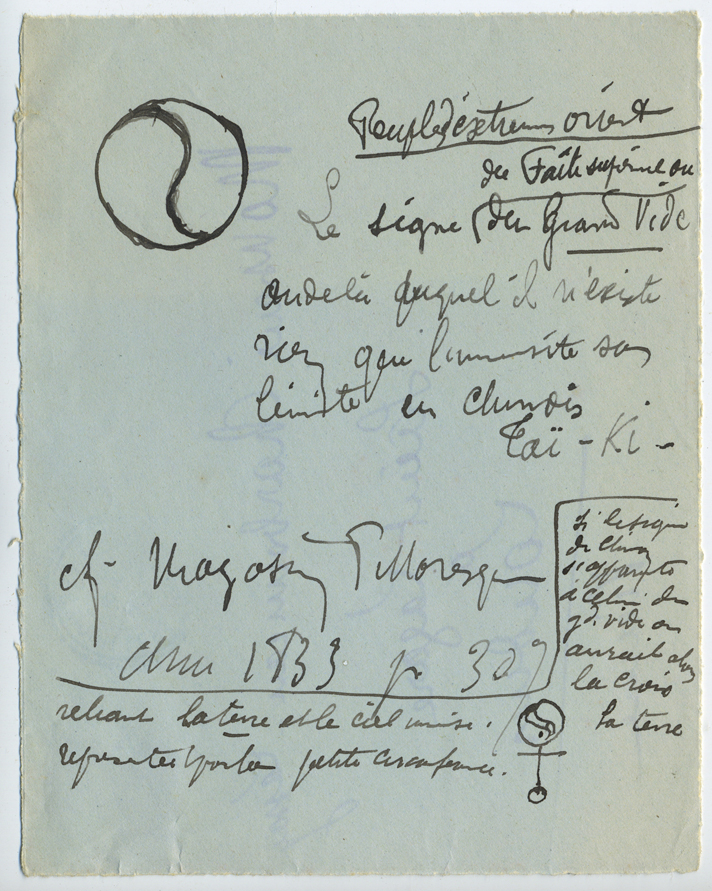 Peuples d'extrême orient
du Faîte suprême ou
Le signe (du Grand Vide
au delà duquel il n'existe
rien que l'immensité sans
limite en chinois
Taï-Ki-
cf Magasin Pittoresque
Ann 1833 p 307
si le signe
de Chine
s'apparente
à celui du
gd. vide on
aurait alors
la croix
reliant la terre et le ciel
la terre
représentée par la petite circonférence.